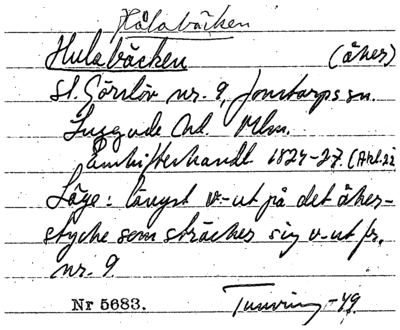 Hålabäcken
Hulabäcken (åker)
St. Görslöv nr. 9, Jonstorps sn.
Luggude hd. Mlm.
Enskifteshandl 1824-27. (Akt.22
Läge: längst v-ut på det åker-
stycke som sträcker sig v-ut fr.
nr. 9.
Nr 5683. Tunving -49.